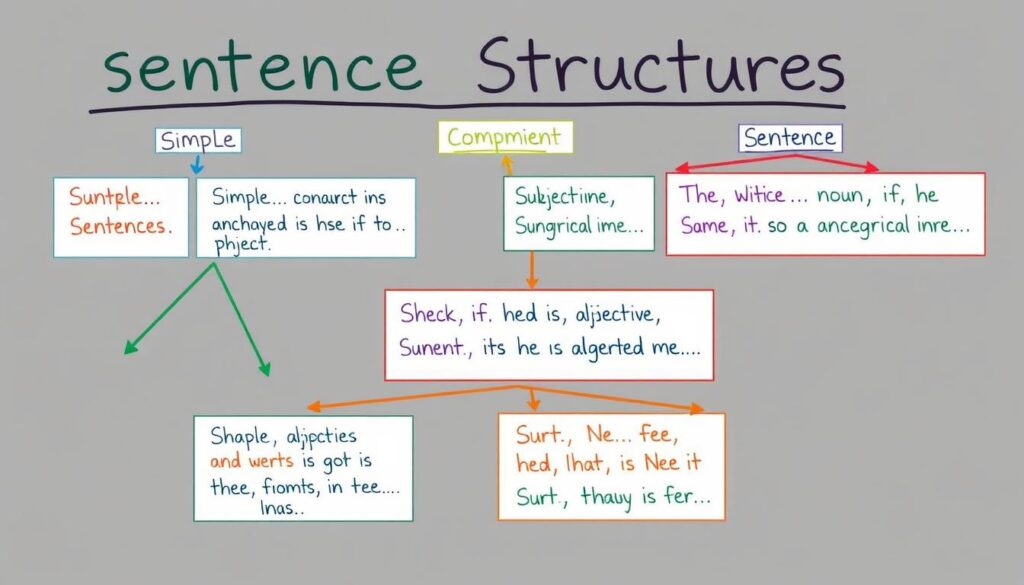 sentence Structures
Simple
Compmient
Sentence
Suntple...
Sentences.
Simple... conarct ins
anchoyed is hse if to..
phject.
Subjectine,
Sungrical ime...
The, Witice... noun, if, he
Same, it. so a ancegrical inre...
Sheck, if. hed is, aljiective,
Sunent., its he is algerted me....
Shaple, aljpcties
and werts is got is
thee, fiomts, in tee....
Inas..
Surt., Ne... fee,
hed, lhat, is Nee it
Surt., thauy is fer...